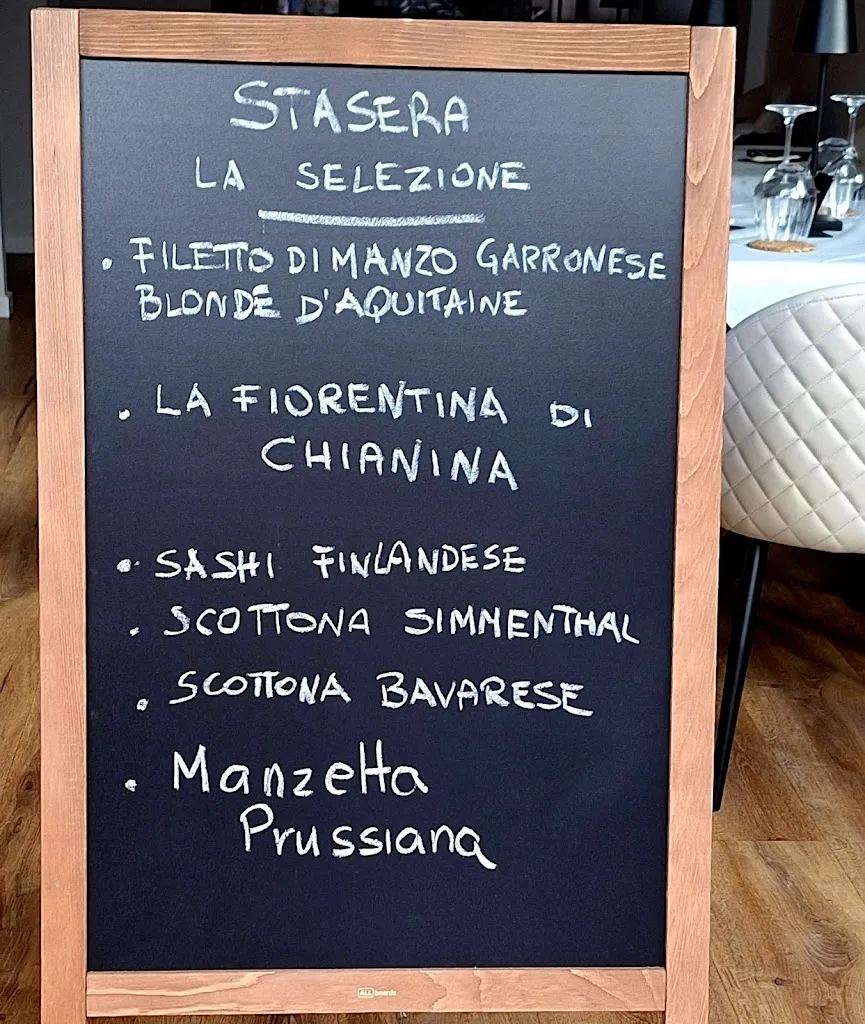 STASERA
LA SELEZIONE
• FILETTO DI MANZO GARRONESE
BLONDE D'AQUITAINE
• LA FIORENTINA DI
CHIANINA
• SASHI FINLANDESE
• SCOTTONA SIMMENTHAL
• SCOTTONA BAVARESE
• Manzetta
Prussiana
ALL boards